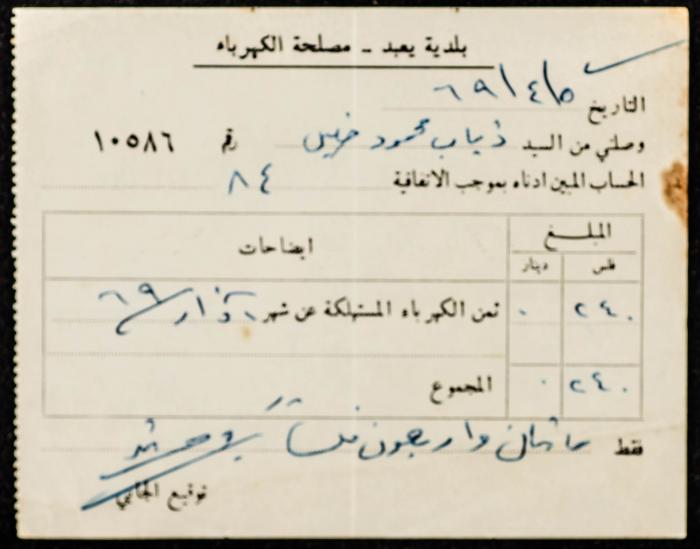 بلدية يعبد - مصلحة الكهرباء
التاريخ ٥/٤/٦٩
وصلني من السيد ذياب محمود رقم ١٠٥٨٦
الحساب المبين ادناه بموجب الاتفاقية ٨٤
المبلغ ايضاحات
فلس دينار
٢٤٠ ٠ ثمن الكهرباء المستهلكة عن شهر آذار ٦٩
٢٤٠ ٠ المجموع
فقط مائتان واربعون فلسا
توقيع الجابي